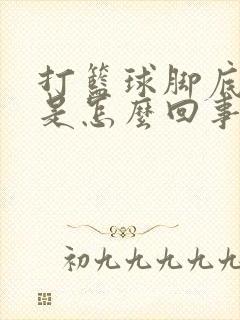 打籃球脚底
是怎麼回事
初九九九九九